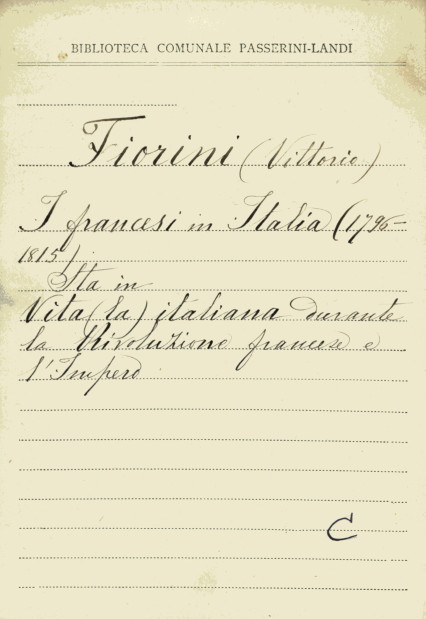 BIBLIOTECA COMUNALE PASSERINI-LANDI
Fiorini (Vittorio)
I francesi in Italia (1796-
1815)
Sta in
Vita (la) italiana durante
la Rivoluzione francese e
l'Impero
C